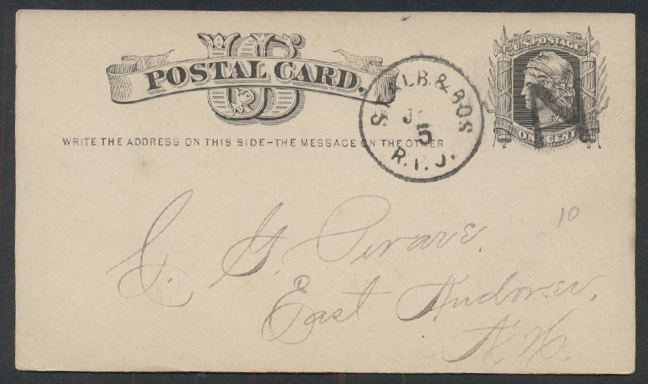 US
POSTAL CARD.
U.S. POSTAGE
ONE CENT
WRITE THE ADDRESS ON THIS SIDE-THE MESSAGE ON THE OTHER
ALB. & BOS
5
10
East Andover,
N.H.